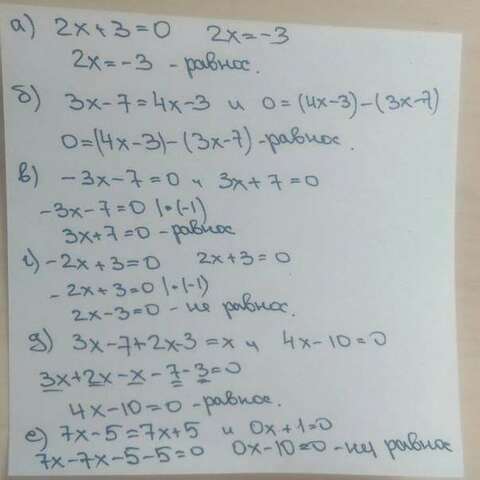 а) 2x+3=0 2x=-3
2x=-3 - равнос.
б) 3x-7=4x-3 и 0=(4x-3)-(3x-7)
0=(4x-3)-(3x-7)-равнос.
в) -3x-7=0 и 3x+7=0
-3x-7=0 |·(-1)
3x+7=0 - равнос
г) -2x+3=0 2x+3=0
-2x+3=0 |·(-1)
2x-3=0 - не равнос.
д) 3x-7+2x-3=x и 4x-10=0
3x+2x-x-7-3=0
4x-10=0 -равнос.
е) 7x-5=7x+5 и 0x+1=0
7x-7x-5-5=0 0x-10=0 -не равнос